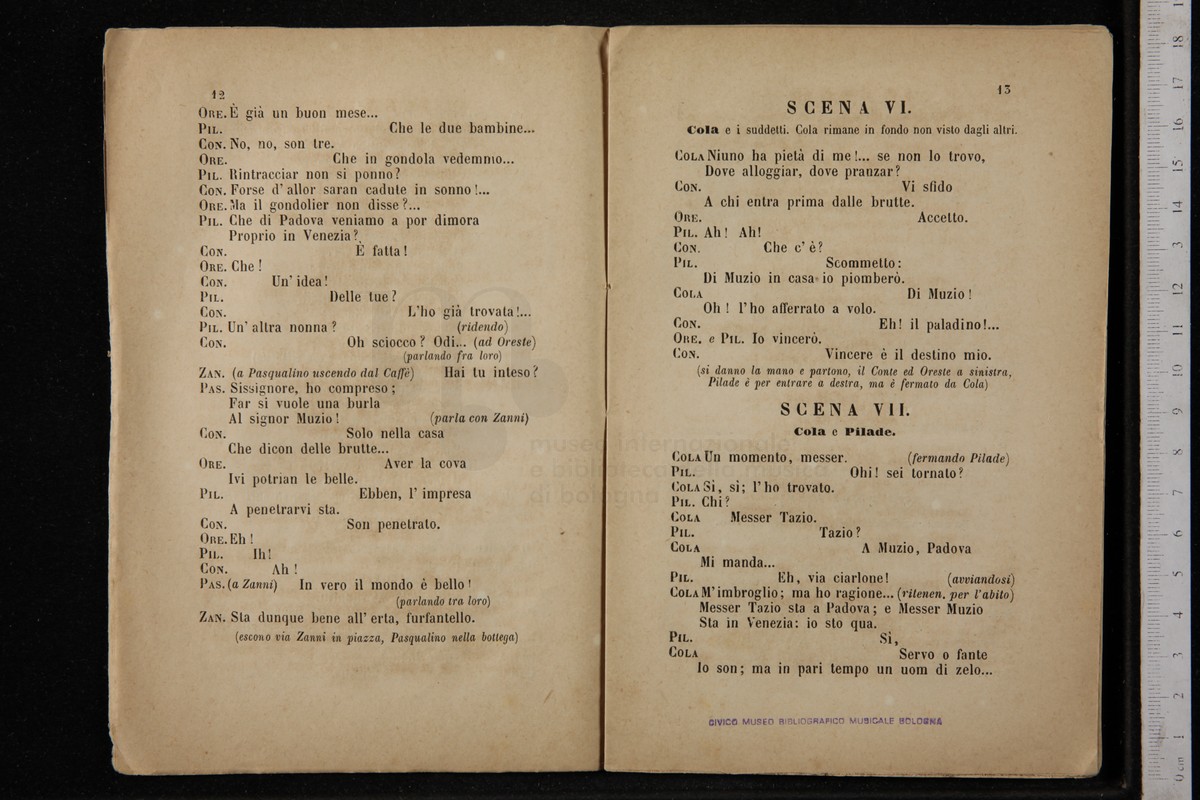 12
ORE. È già un buon mese...
PIL. Che le due bambine...
CON. No, no, son tre.
ORE. Che in gondola vedemmo...
PIL. Rintracciar non si ponno?
CON. Forse d'allor saran cadute in sonno!...
ORE. Ma il gondolier non disse?...
PIL. Che di Padova veniamo a por dimora
Proprio in Venezia?
CON. È fatta!
ORE. Che!
CON. Un'idea!
PIL. Delle tue?
CON. L'ho già trovata!...
PIL. Un'altra nonna? (ridendo)
CON. Oh sciocco? Odi... (ad Oreste)
(parlando fra loro)
ZAN. (a Pasqualino uscendo dal Caffè) Hai tu inteso?
PAS. Sissignore, ho compreso;
Far si vuole una burla
Al signor Muzio! (parla con Zanni)
CON. Solo nella casa
Che dicon delle brutte...
ORE. Aver la cova
Ivi potrian le belle.
PIL. Ebben, l'impresa
A penetrarvi sta.
CON. Son penetrato.
ORE. Eh!
PIL. Ih!
CON. Ah!
PAS. (a Zanni) In vero il mondo è bello!
(parlando tra loro)
ZAN. Sta dunque bene all'erta, furfantello.
(escono via Zanni in piazza, Pasqualino nella bottega)
13
SCENA VI.
Cola e i suddetti. Cola rimane in fondo non visto dagli altri.
COLA Niuno ha pietà di me!... se non lo trovo,
Dove alloggiar, dove pranzar?
CON. Vi sfido
A chi entra prima dalle brutte.
ORE. Accetto.
PIL. Ah! Ah!
CON. Che c'è?
PIL. Scommetto:
Di Muzio in casa io piomberò.
COLA Di Muzio!
Oh! l'ho afferrato a volo.
CON. Eh! il paladino!...
ORE. e PIL. Io vincerò.
CON. Vincere è il destino mio.
(si danno la mano e partono, il Conte ed Oreste a sinistra,
Pilade è per entrare a destra, ma è fermato da Cola)
SCENA VII.
Cola e Pilade.
COLA Un momento, messer. (fermando Pilade)
PIL. Ohi! sei tornato?
COLA Si, sì; l'ho trovato.
PIL. Chi?
COLA Messer Tazio.
PIL. Tazio?
COLA A Muzio, Padova
Mi manda...
PIL. Eh, via ciarlone! (avviandosi)
COLA M'imbroglio; ma ho ragione... (ritenen. per l'abito)
Messer Tazio sta a Padova; e Messer Muzio
Sta in Venezia: io sto qua.
PIL. Si,
COLA Servo o fante
Io son; ma in pari tempo un uom di zelo...
CIVICO MUSEO BIBLIOGRAFICO MUSICALE BOLOGNA
museo internazionale
e biblioteca della musica
di bologna
0 cm 1 2 3 4 5 6 7 8 9 10 11 12 13 14 15 16 17 18